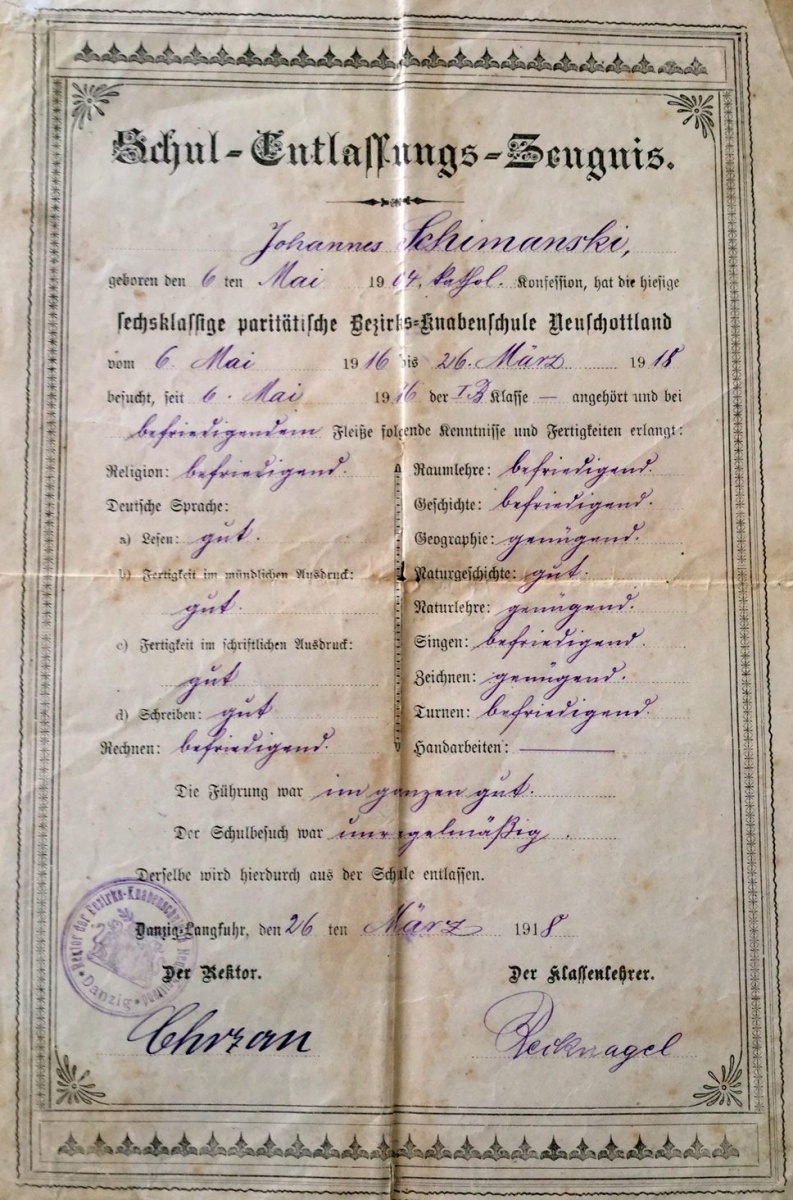 Schul-Entlassungs-Zeugnis.
Johannes Schimanski,
geboren den 6 ten Mai 1904, kathol. Konfession, hat die hiesige
sechsklassige paritätische Bezirks-Knabenschule Neuschottland
vom 6. Mai 1916 bis 26. März 1918
besucht, seit 6. Mai 1916 der I.B Klasse — angehört und bei
befriedigendem Fleiße folgende Kenntnisse und Fertigkeiten erlangt:
Religion: befriedigend.
Deutsche Sprache:
a) Lesen: gut.
b) Fertigkeit im mündlichen Ausdruck:
gut.
c) Fertigkeit im schriftlichen Ausdruck:
gut
d) Schreiben: gut
Rechnen: befriedigend.
Raumlehre: befriedigend.
Geschichte: befriedigend.
Geographie: genügend.
Naturgeschichte: gut.
Naturlehre: genügend.
Singen: befriedigend.
Zeichnen: genügend.
Turnen: befriedigend.
Handarbeiten: ———
Die Führung war im ganzen gut.
Der Schulbesuch war unregelmäßig.
Derselbe wird hierdurch aus der Schule entlassen.
Danzig-Langfuhr, den 26 ten März 1918
Rektor der Bezirks-Knabenschule Neuschottland
Danzig
Der Rektor.
Der Klassenlehrer.
Chrzan
Recknagel